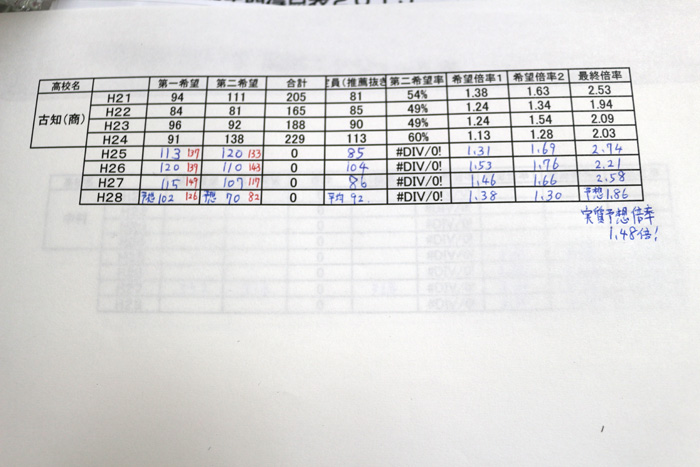 高校名 第一希望 第二希望 合計 定員(推薦抜き 第二希望率 希望倍率1 希望倍率2 最終倍率
古知(商)
H21 94 111 205 81 54% 1.38 1.63 2.53
H22 84 81 165 85 49% 1.24 1.34 1.94
H23 96 92 188 90 49% 1.24 1.54 2.09
H24 91 138 229 113 60% 1.13 1.28 2.03
H25 113 137 120 133 0 85 #DIV/0! 1.31 1.69 2.74
H26 120 139 110 143 0 104 #DIV/0! 1.53 1.76 2.21
H27 115 149 107 117 0 86 #DIV/0! 1.46 1.66 2.58
H28 予想 102 126 予想 70 82 0 平均 92. #DIV/0! 1.38 1.30 予想 1.86
実質予想倍率
1.48倍!